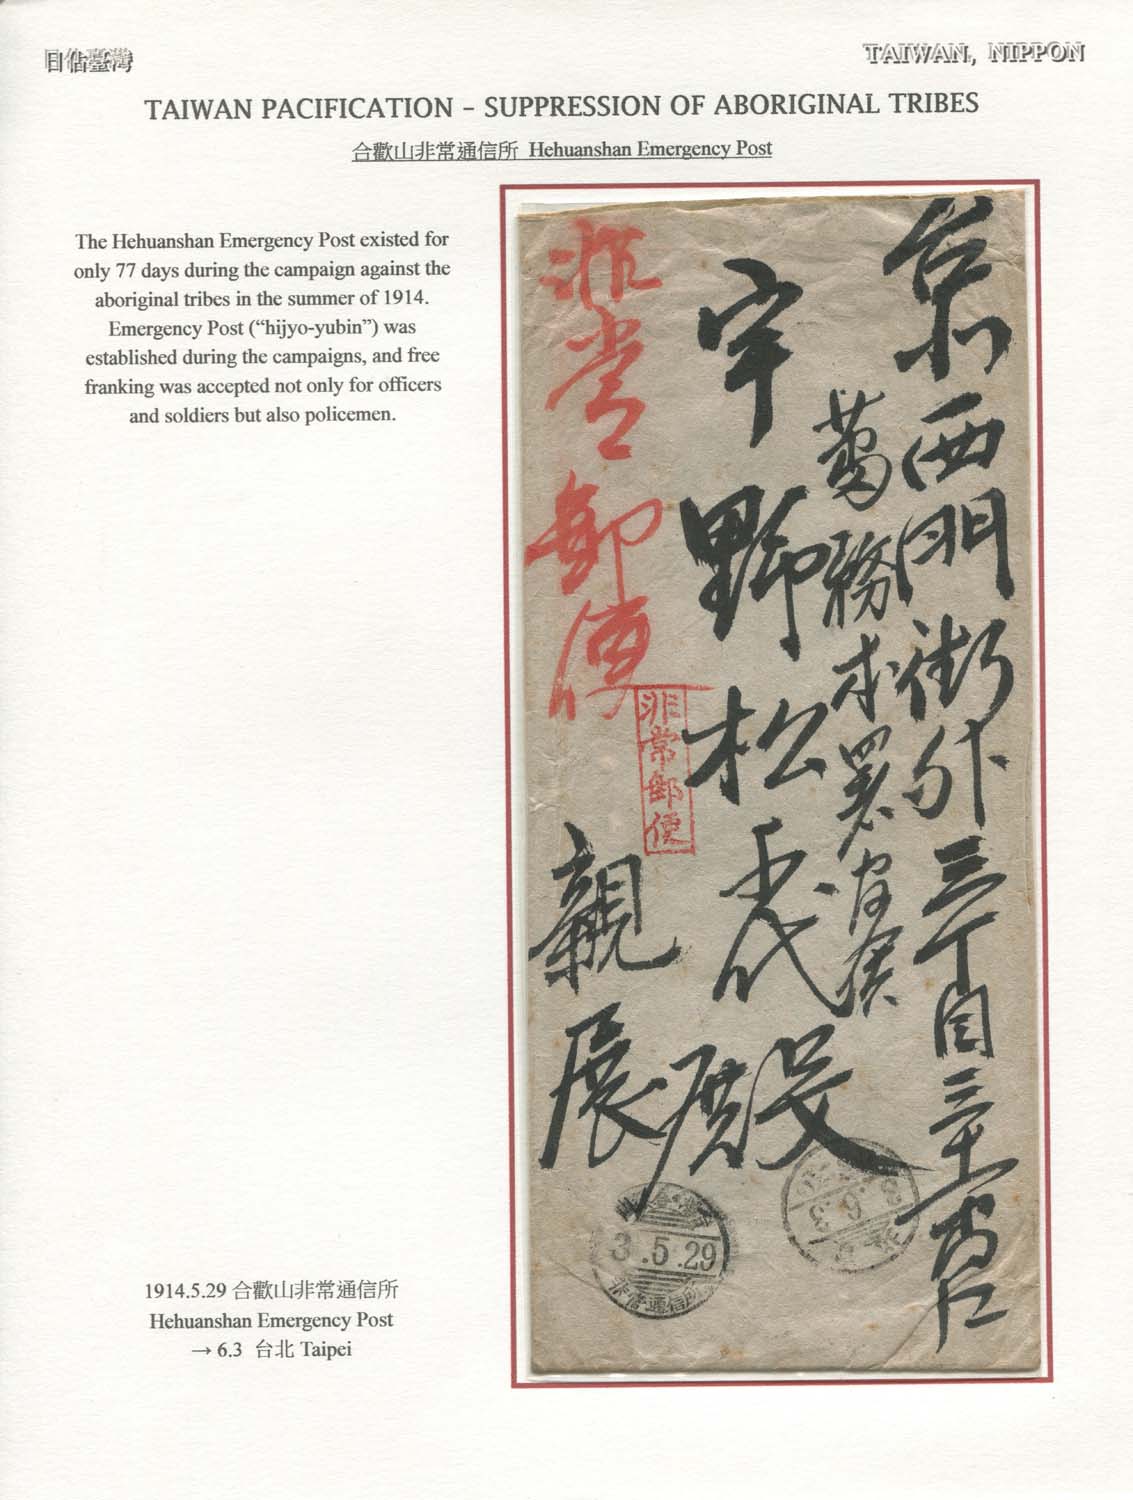 日佔臺灣
TAIWAN, NIPPON
TAIWAN PACIFICATION – SUPPRESSION OF ABORIGINAL TRIBES
合歡山非常通信所 Hehuanshan Emergency Post
The Hehuanshan Emergency Post existed for
only 77 days during the campaign against the
aboriginal tribes in the summer of 1914.
Emergency Post (“hijyo-yubin”) was
established during the campaigns, and free
franking was accepted not only for officers
and soldiers but also policemen.
台北西門街外三丁目
宇野松代殿
親展
非常郵便
非常郵便
3.5.29
非常通信所
3.6.3
1914.5.29 合歡山非常通信所
Hehuanshan Emergency Post
→ 6.3 台北 Taipei